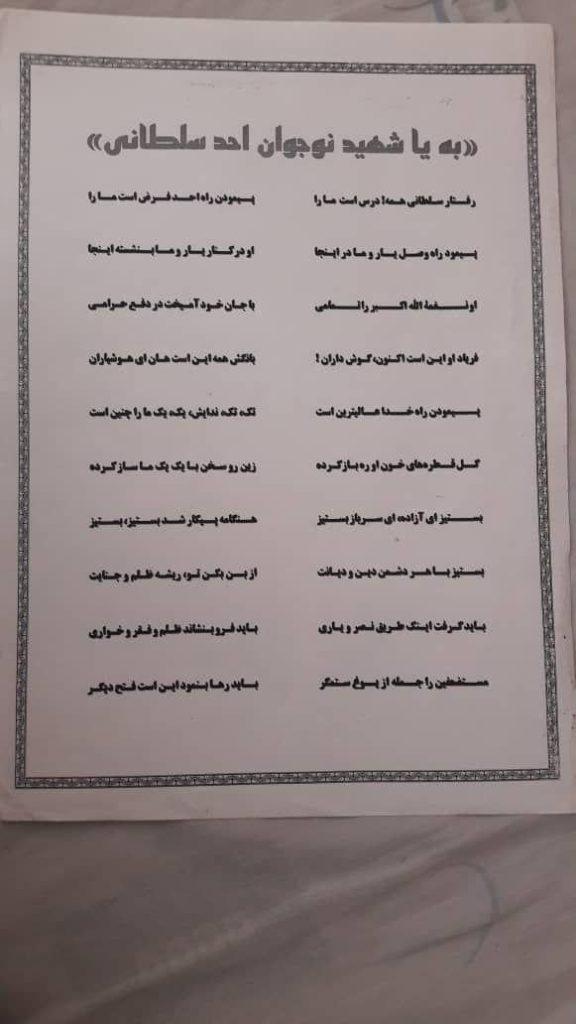 «به یا شهید نوجوان احد سلطانی»
رفتار سلطانی همه! درس است ما را پیمودن راه احد فرض است ما را
پیمود راه وصل یار و ما در اینجا او در کنار یار و ما بنشسته اینجا
او نغمهٔ الله اکبر را نمامی با جان خود آمیخت در دفع حرامی
فریاد او این است اکنون، گوش داران ! بانگش همه این است هان ای هوشیاران
پیمودن راه خدا عالیترین است تک، تک، ندایش، یک، یک ما را چنین است
گل قطره‌های خون او ره باز کرده زین رو سخن با یک یک ما ساز کرده
بستیز ای آزاده، ای سرباز بستیز هنگامه پیکار شد بستیز، بستیز
بستیز با هر دشمن دین و دیانت از بن بکن تو، ریشه ظلم و جنایت
باید گرفت اینک طریق نصر و یاری باید فرو بنشاند ظلم و فقر و خواری
مستضعفین را جمله از یوغ ستمگر باید رها بنمود این است فتح دیگر